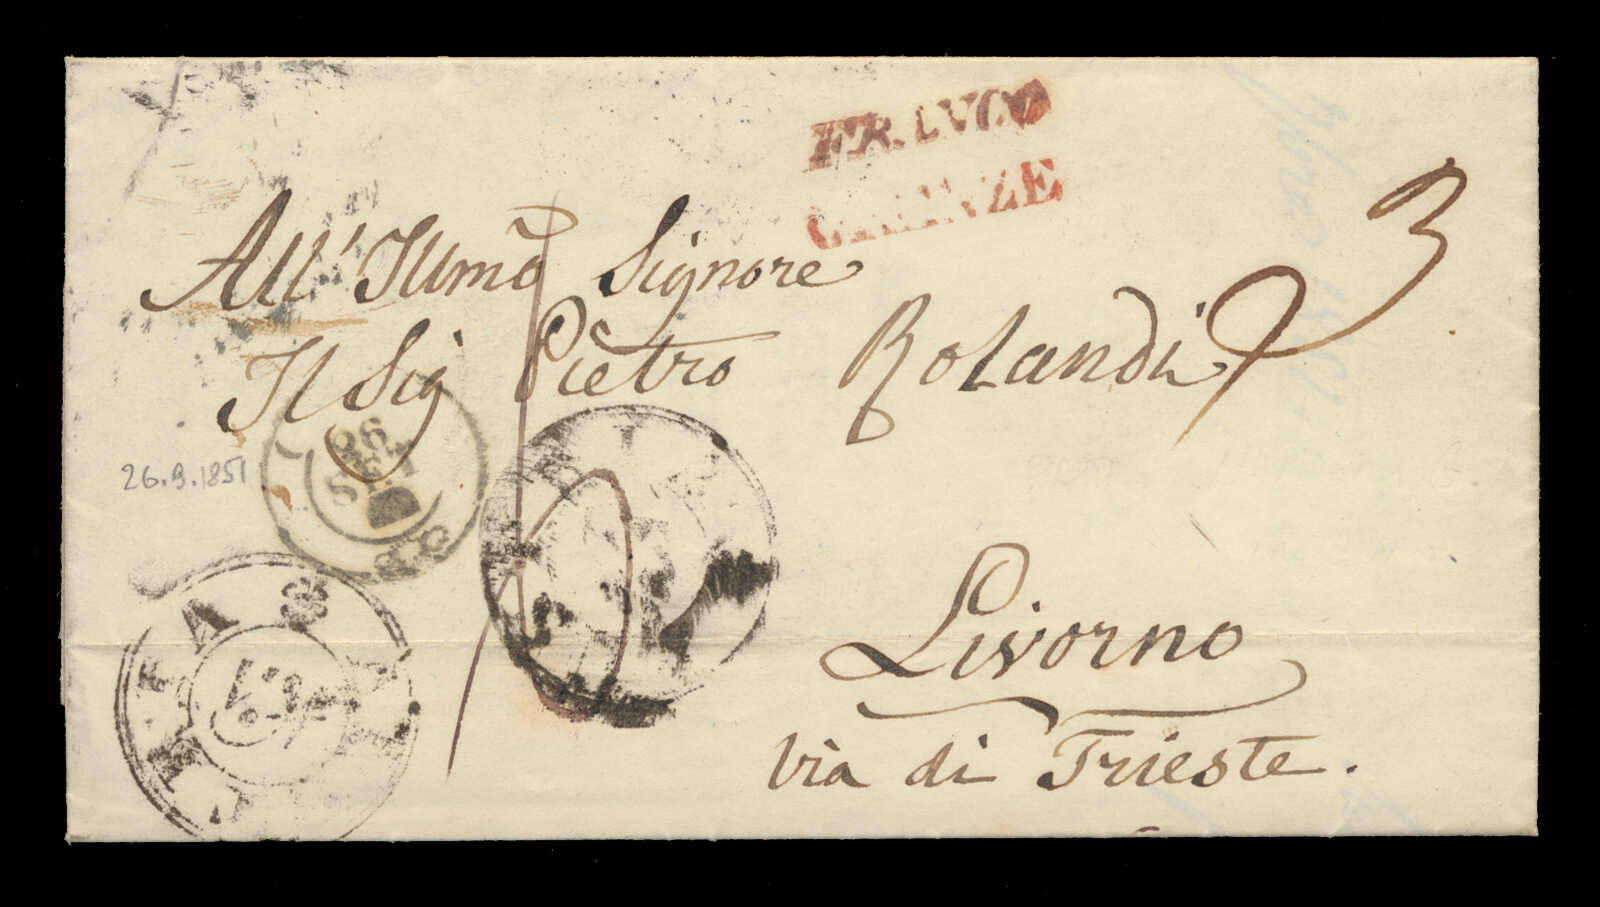 FRANCO
GRÄNZE
3
All'Illmo Signore
Il Sig Pietro Rolandi
26.9.1851
26
SET
Livorno
via di Trieste.